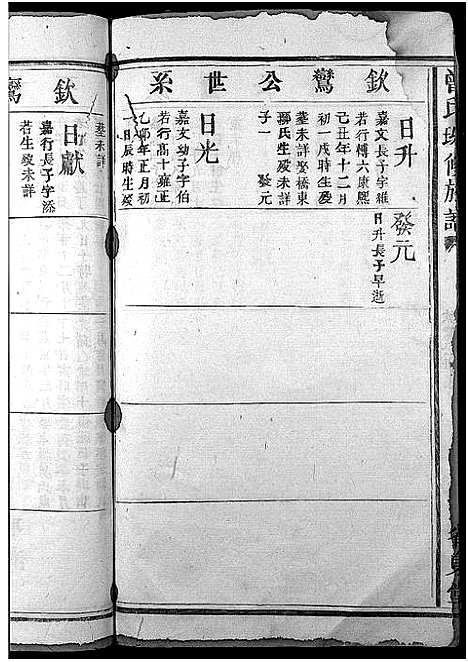 欽鸞公世系
日升
嘉文長子字維
若行傅六康熙
己丑年十二月
初一戌時生歿
葬未詳娶橋東
孫氏生歿未詳
子一 發元
發元
日升長子早逝
日光
嘉文幼子字伯
若行高十雍正
乙卯年正月初
一日辰時生歿
葬未詳
欽鸞
日獻
嘉行長子字添
若生歿未詳